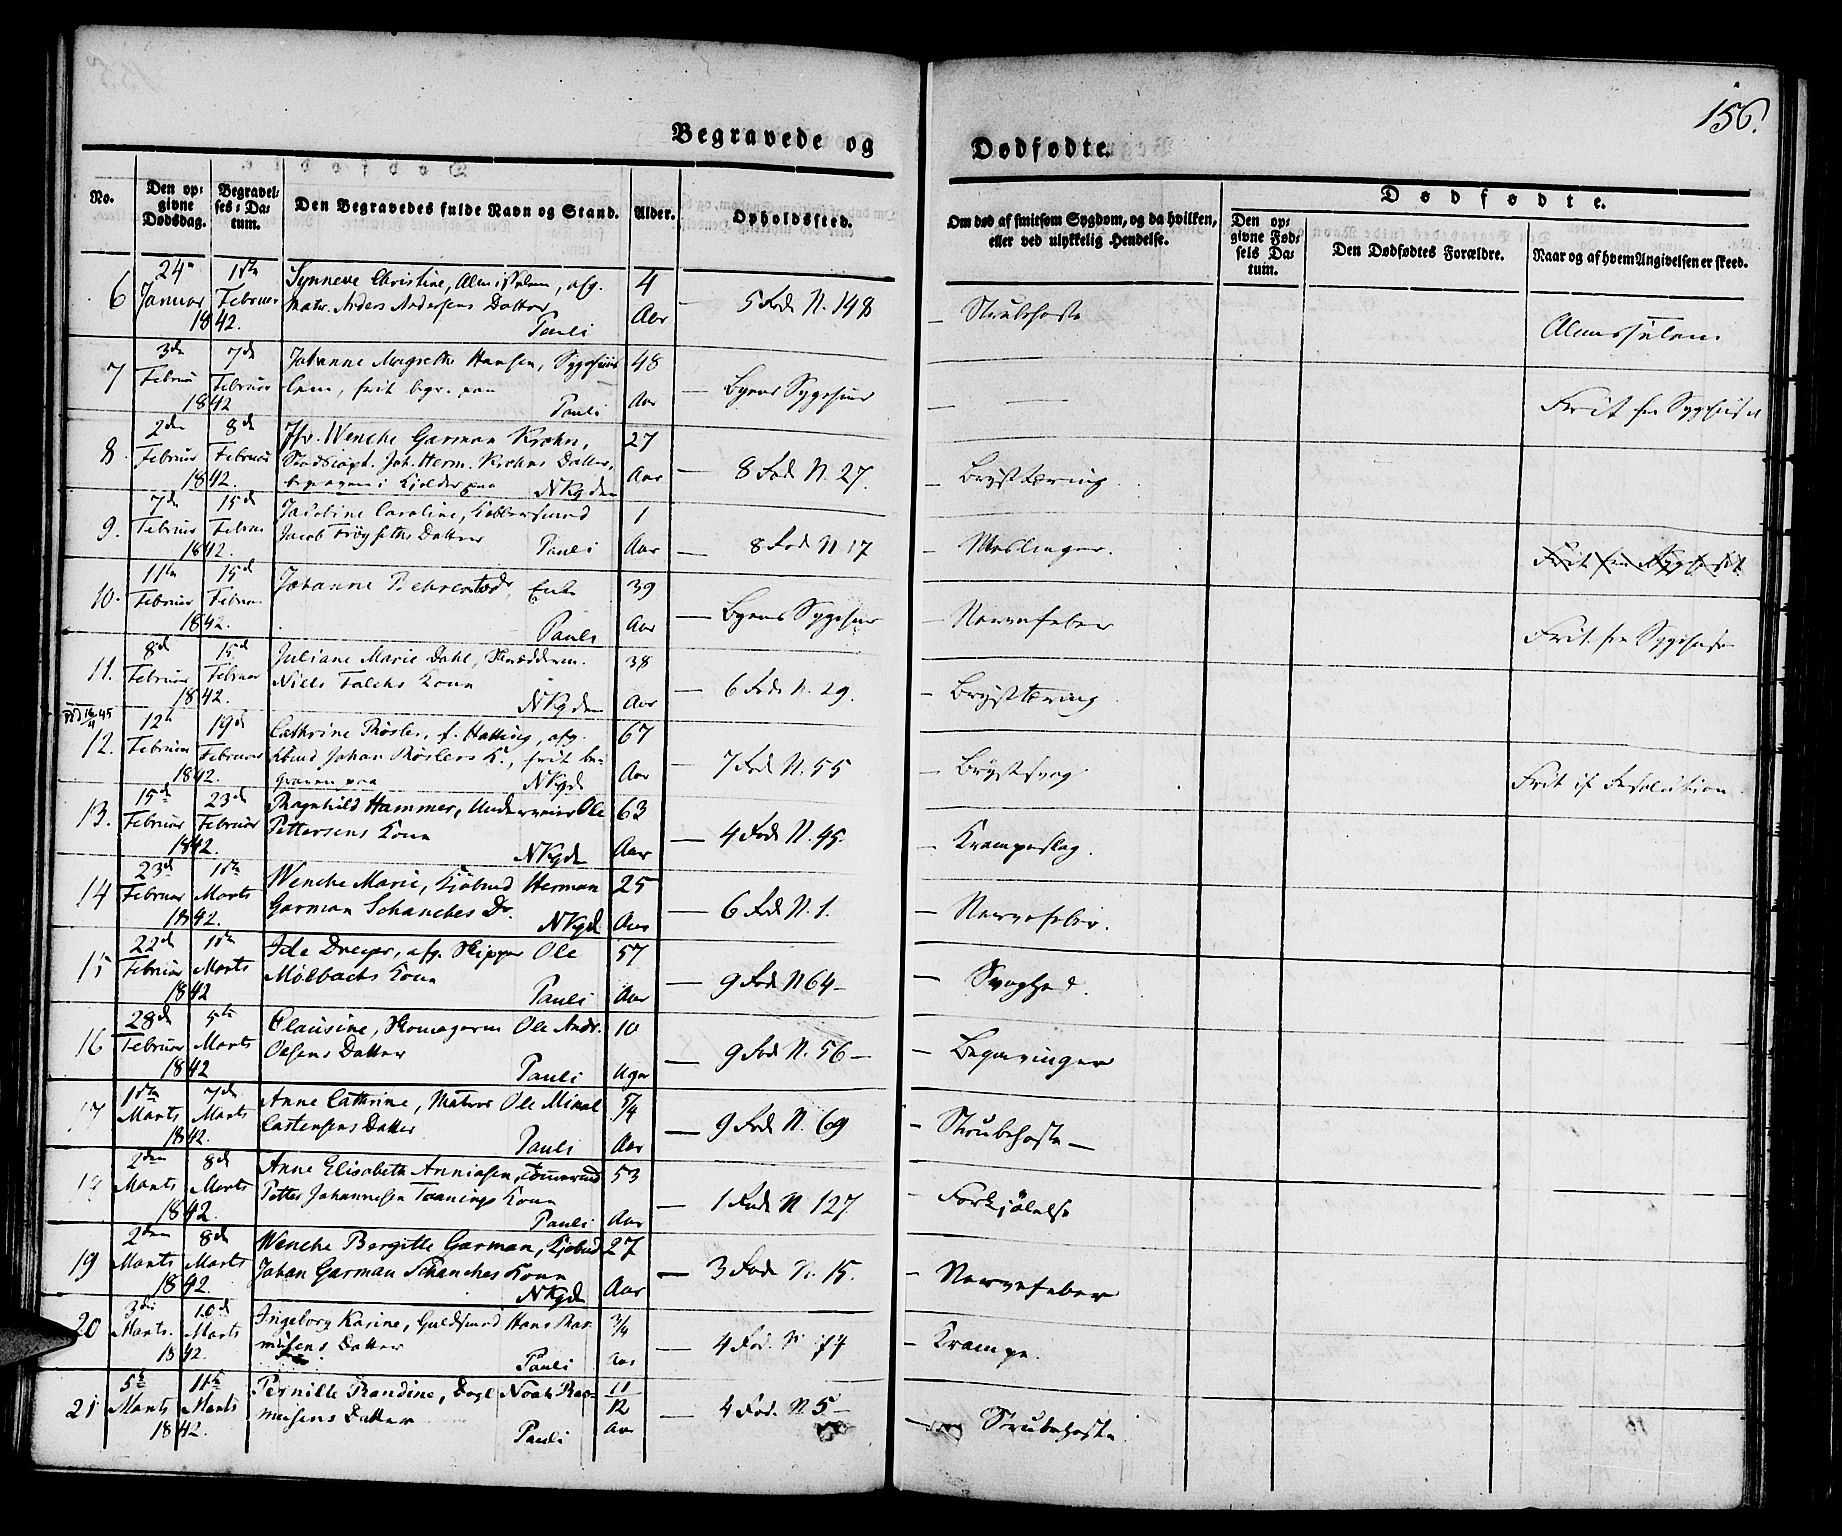 156.
Begravede og Dødfødte.
No.
Den opgivne Dødsdag.
Begravelses-Datum.
Den Begravedes fulde Navn og Stand.
Alder.
Opholdssted.
Om død af smitsom Sygdom, og da hvilken, eller ved ulykkelig Hendelse.
Dødfødte.
Den opgivne Fødsels Datum.
Den Dødfødtes Forældre.
Naar og af hvem Angivelsen er skeed.
6 24 Januar 1842. 1ste Februar Synneve Christine, Almisselem, afg.
Matr. Anders Andersens Datter Pauli
4 Aar — 5 Rode N. 148 — Strubehoste
7 3de Februar 1842 7de Februar Johanne Margrethe Hansen, Sygehuus
lem, frit begr. paa Pauli
48 Aar — Byens Sygehuus — — Frit fra Sygehuset
8. 2den Februar 1842. 8de Februar Jfr. Wenche Garman Krohn,
Stadscapt. Joh. Herm. Krohns Datter,
begraven i Kjelder paa NKgden
27 Aar — 8 Rode N. 27. — Brysttæring
9. 7de Februar 1842. 15de Februar Jacobine Caroline, Kobbersmed
Jacob Frøyseths Datter Pauli
1 Aar — 8 Rode N 17 — Meslinger. Frit fra Sygehuset
10. 11te Februar 1842. 15de Februar Johanne Behrenstad, Enke
Pauli
39 Aar — Byens Sygehuus — Nervefeber Frit fra Sygehuset
11. 8de Februar 1842. 15de Februar Juliane Marie Dahl, Skrædderm.
Niels Falchs Kone NKgden
38 Aar — 6 Rode N. 29. — Brysttæring
12. 12te Februar 1842. 19de Februar Cathrine Røsler, f. Hatting, afg.
Johan Røslers E., frit be-
graven paa NKgd
67 Aar — 7 Rode N. 55 — Brystsvag Frit if Resolution
13. 15de Februar 1842. 23de Februar Ragnhild Hammer, Ole
Pettersens Kone NKgde
63 Aar — 4 Rode N. 45. — Krampeslag.
14 23de Februar 1842. 1ste Marts Wenche Marie, Kjøbmd Herman
Garman Schanches Dr. NKgd.
25 Aar — 6 Rode N. 1. — Nervefeber.
15 22de Februar 1842 1ste Marts Ide Dreyer, afg. Skipper Ole
Mølbachs Kone Pauli
57 Aar — 9 Rode N 64 — Svaghed.
16 28de Februar 1842 5te Marts Clausine, Skomagerm Ole Andr.
Olsens Datter Pauli
10 Uger — 9 Rode N. 56 — Begavinger
17 1ste Marts 1842. 7de Marts Anne Cathrine, Matros Ole Mikal
Castensens Datter Pauli
5/4 Aar — 9 Rode N. 69 — Strubehoste —
18 2den Marts 1842. 8de Marts Anne Elisabeth Anniasen,
Petter Johannesen Taanings Kone Pauli
53 Aar — 1 Rode N 127. — Forkjølelse
19 2den Marts 1842. 8de Marts Wenche Bergitte Garman, Kjøbmd
Johan Garman Schanches Kone NKgde
27 Aar — 3 Rode N. 15. — Nervefeber
20 3die Marts. 1842. 10de Marts Ingeborg Karine, Guldsmed Hans Ras-
musens Datter Pauli
3/4 Aar — 4 Rode. N 74 — Krampe.
21 5te Marts 1842. 11te Marts Pernille Randine, Noah Ras-
musens Datter Pauli
11/12 Aar — 4 Rode. N. 5 — Strubehoste.